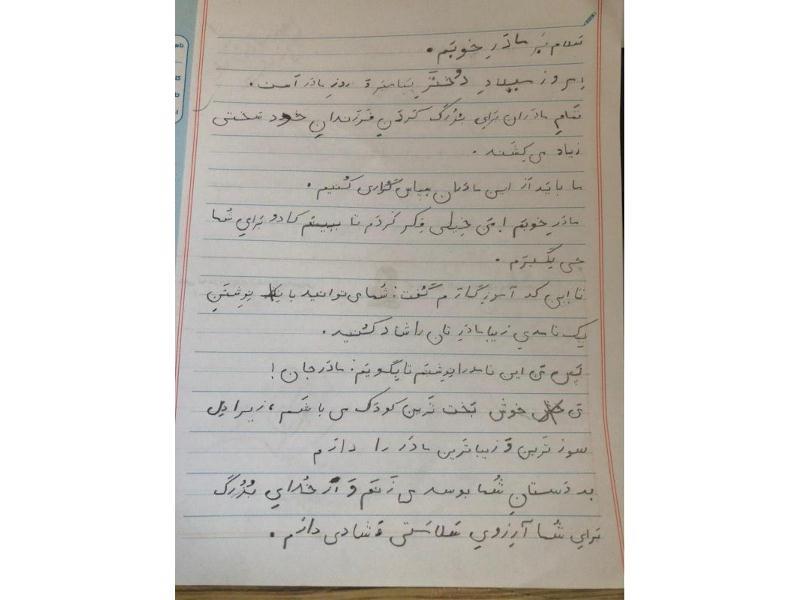 سلام بَر مادَرِ خوبَم.
اِمروز میلادِ دُختَرِ پیامبَر وَ روزِ مادَر اَست.
تَمامِ مادَران بَرای بُزُرگ کَردَنِ فَرزَندانِ خود سَختی
زیاد می کِشَند.
ما بایَد اَز این مادَران سِپاس گُزاری کُنیم.
مادَرِ خوبَم! مَن خِیلی فِکر کَردَم تا ببینَم کادو بَرایِ شُما
چی بگیرَم.
تا این که آموزگارَم گُفت: شُما می توانید با نِوِشتَنِ
یِک نامه‌ي زیبا مادَرِتان را شاد کُنید.
پَس مَن این نامه را نِوِشتَم تا بِگویَم: مادَر جان!
مَن خوش بَخت تَرین کودَک می باشَم، زیرا دِل
سوز تَرین وَ زیباتَرین مادَر را دارَم
به دَستانِ شُما بوسه می زَنَم وَ اَز خُدایِ بُزُرگ
بَرایِ شُما آرِزویِ سَلامَتی وَ شادی دارَم.